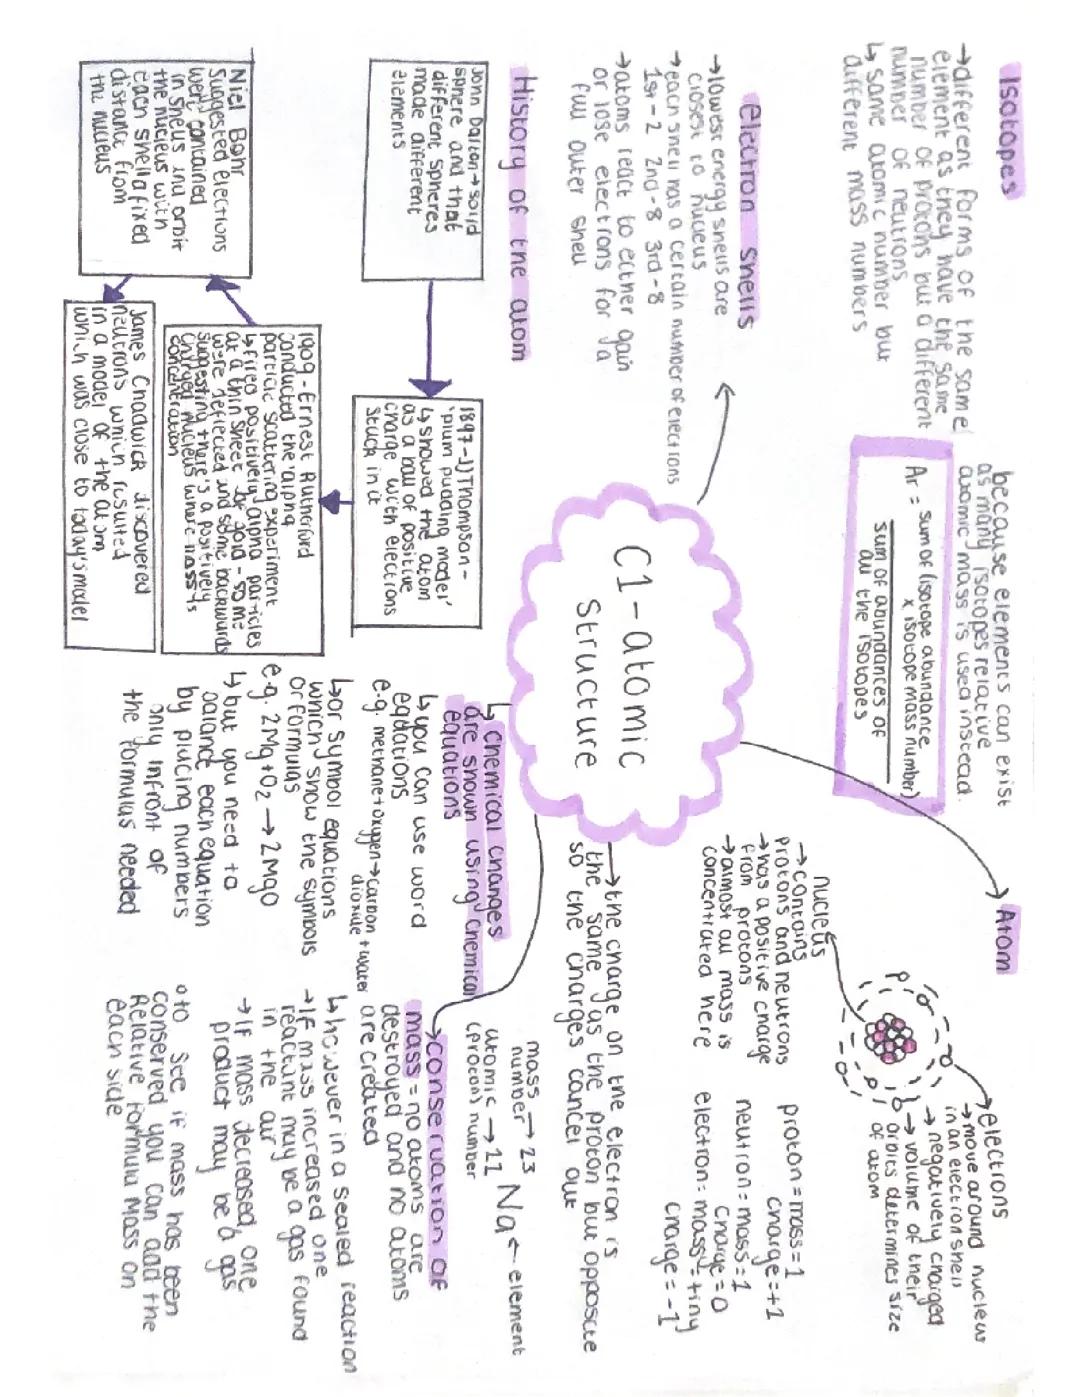 C1-atomic
Structure
Isotopes
→different forms of the same
element as they have the same
number of protons but a different
number of neutrons
↳ same atomic number but
different mass numbers
because elements can exist
as many isotopes relative
atomic mass is used instead.
Ar = sum of (isotope abundance
x isotope mass number)
sum of abundances of
all the isotopes
electron shells
→lowest energy shells are
closest to nucleus
→each shell has a certain number of electrons
1st-2 2nd-8 3rd-8
→atoms react to either gain
or lose electrons for a
full outer shell
History of the atom
John Dalton→solid
sphere and that
different spheres
made different
elements
1897-JJ Thompson-
'plum pudding model'
↳ showed the atom
as a ball of positive
charge with electrons
stuck in it
1909-Ernest Rutherford
conducted the 'alpha
particle scattering experiment
↳fired positively alpha particles
at a thin sheet of gold - some
were deflected and some backwards
suggesting there's a positively
charged nucleus where mass is
concentration
Niel Bohr
suggested electrons
were contained
in shells and orbit
the nucleus with
each shell a fixed
distance from
the nucleus
James Chadwick discovered
neutrons which resulted
in a model of the atom
which was close to today's model
Atom
electrons
→move around nucleus
in an electron shell
→negatively charged
→volume of their
orbits determines size
of atom
nucleus
→contains
protons and neutrons
→has a positive charge
from protons
→almost all mass is
concentrated here
proton=mass=1
charge=+1
neutron=mass=1
charge=0
electron=mass=tiny
charge=-1
→the charge on the electron is
the same as the proton but opposite
so the charges cancel out
mass → 23
number
Na ← element
atomic → 11
(proton) number
↳chemical changes
are shown using chemical
equations
↳you can use word
equations
e.g. methane+oxygen→carbon + water
dioxide
↳or symbol equations
which show the symbols
or formulas
e.g. 2Mg+O2 → 2MgO
↳but you need to
balance each equation
by placing numbers
only infront of
the formulas needed
→conservation of
mass = no atoms are
destroyed and no atoms
are created
↳however in a sealed reaction
→If mass increased one
reactant may be a gas found
in the air
→If mass decreased one
product may be a gas
to see if mass has been
conserved you can add the
Relative formula Mass on
each side